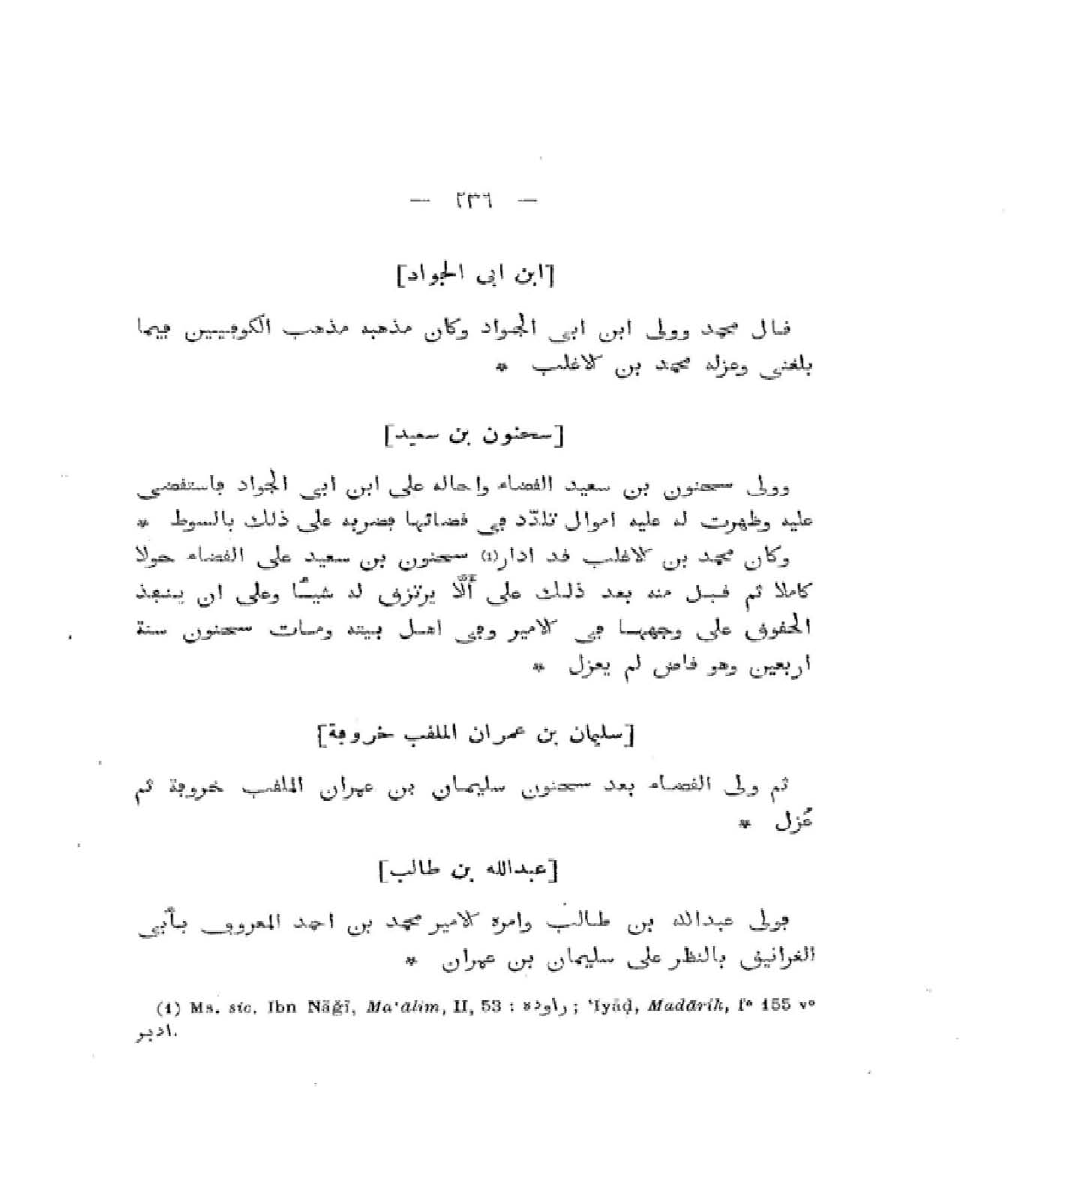 — ٢٣٦ —
[ابن ابى الجواد]
قال محمد وولى ابن ابى الجواد وكان مذهبه مذهب الكوفيين فيما
بلغنى وعزله محمد بن الاغلب *
[سحنون بن سعيد]
وولى سحنون بن سعيد القضاء واحاله على ابن ابى الجواد فاستقضى
عليه وظهرت له عليه اموال تلدّد فى قضائها فضربه على ذلك بالسوط *
وكان محمد بن الاغلب قد ادار(1) سحنون بن سعيد على القضاء حولا
كاملا ثم قبل منه بعد ذلك على ألّا يرتزق له شيئًا وعلى ان ينفذ
الحقوق على وجهها فى الامير وفى اهل بيته ومات سحنون سنة
اربعين وهو قاض لم يعزل *
[سليمان بن عمران الملقب خروفة]
ثم ولى القضاء بعد سحنون سليمان بن عمران الملقب خروفة ثم
عُزل *
[عبدالله بن طالب]
فولى عبدالله بن طالب وامره الامير محمد بن احمد المعروف بأبى
الغرانيق بالنظر على سليمان بن عمران *
(1) Ms. sic. Ibn Nāǧī, Ma'ālim, II, 53 : راوده ; 'Iyāḍ, Madārik, f° 155 v°
ادير.